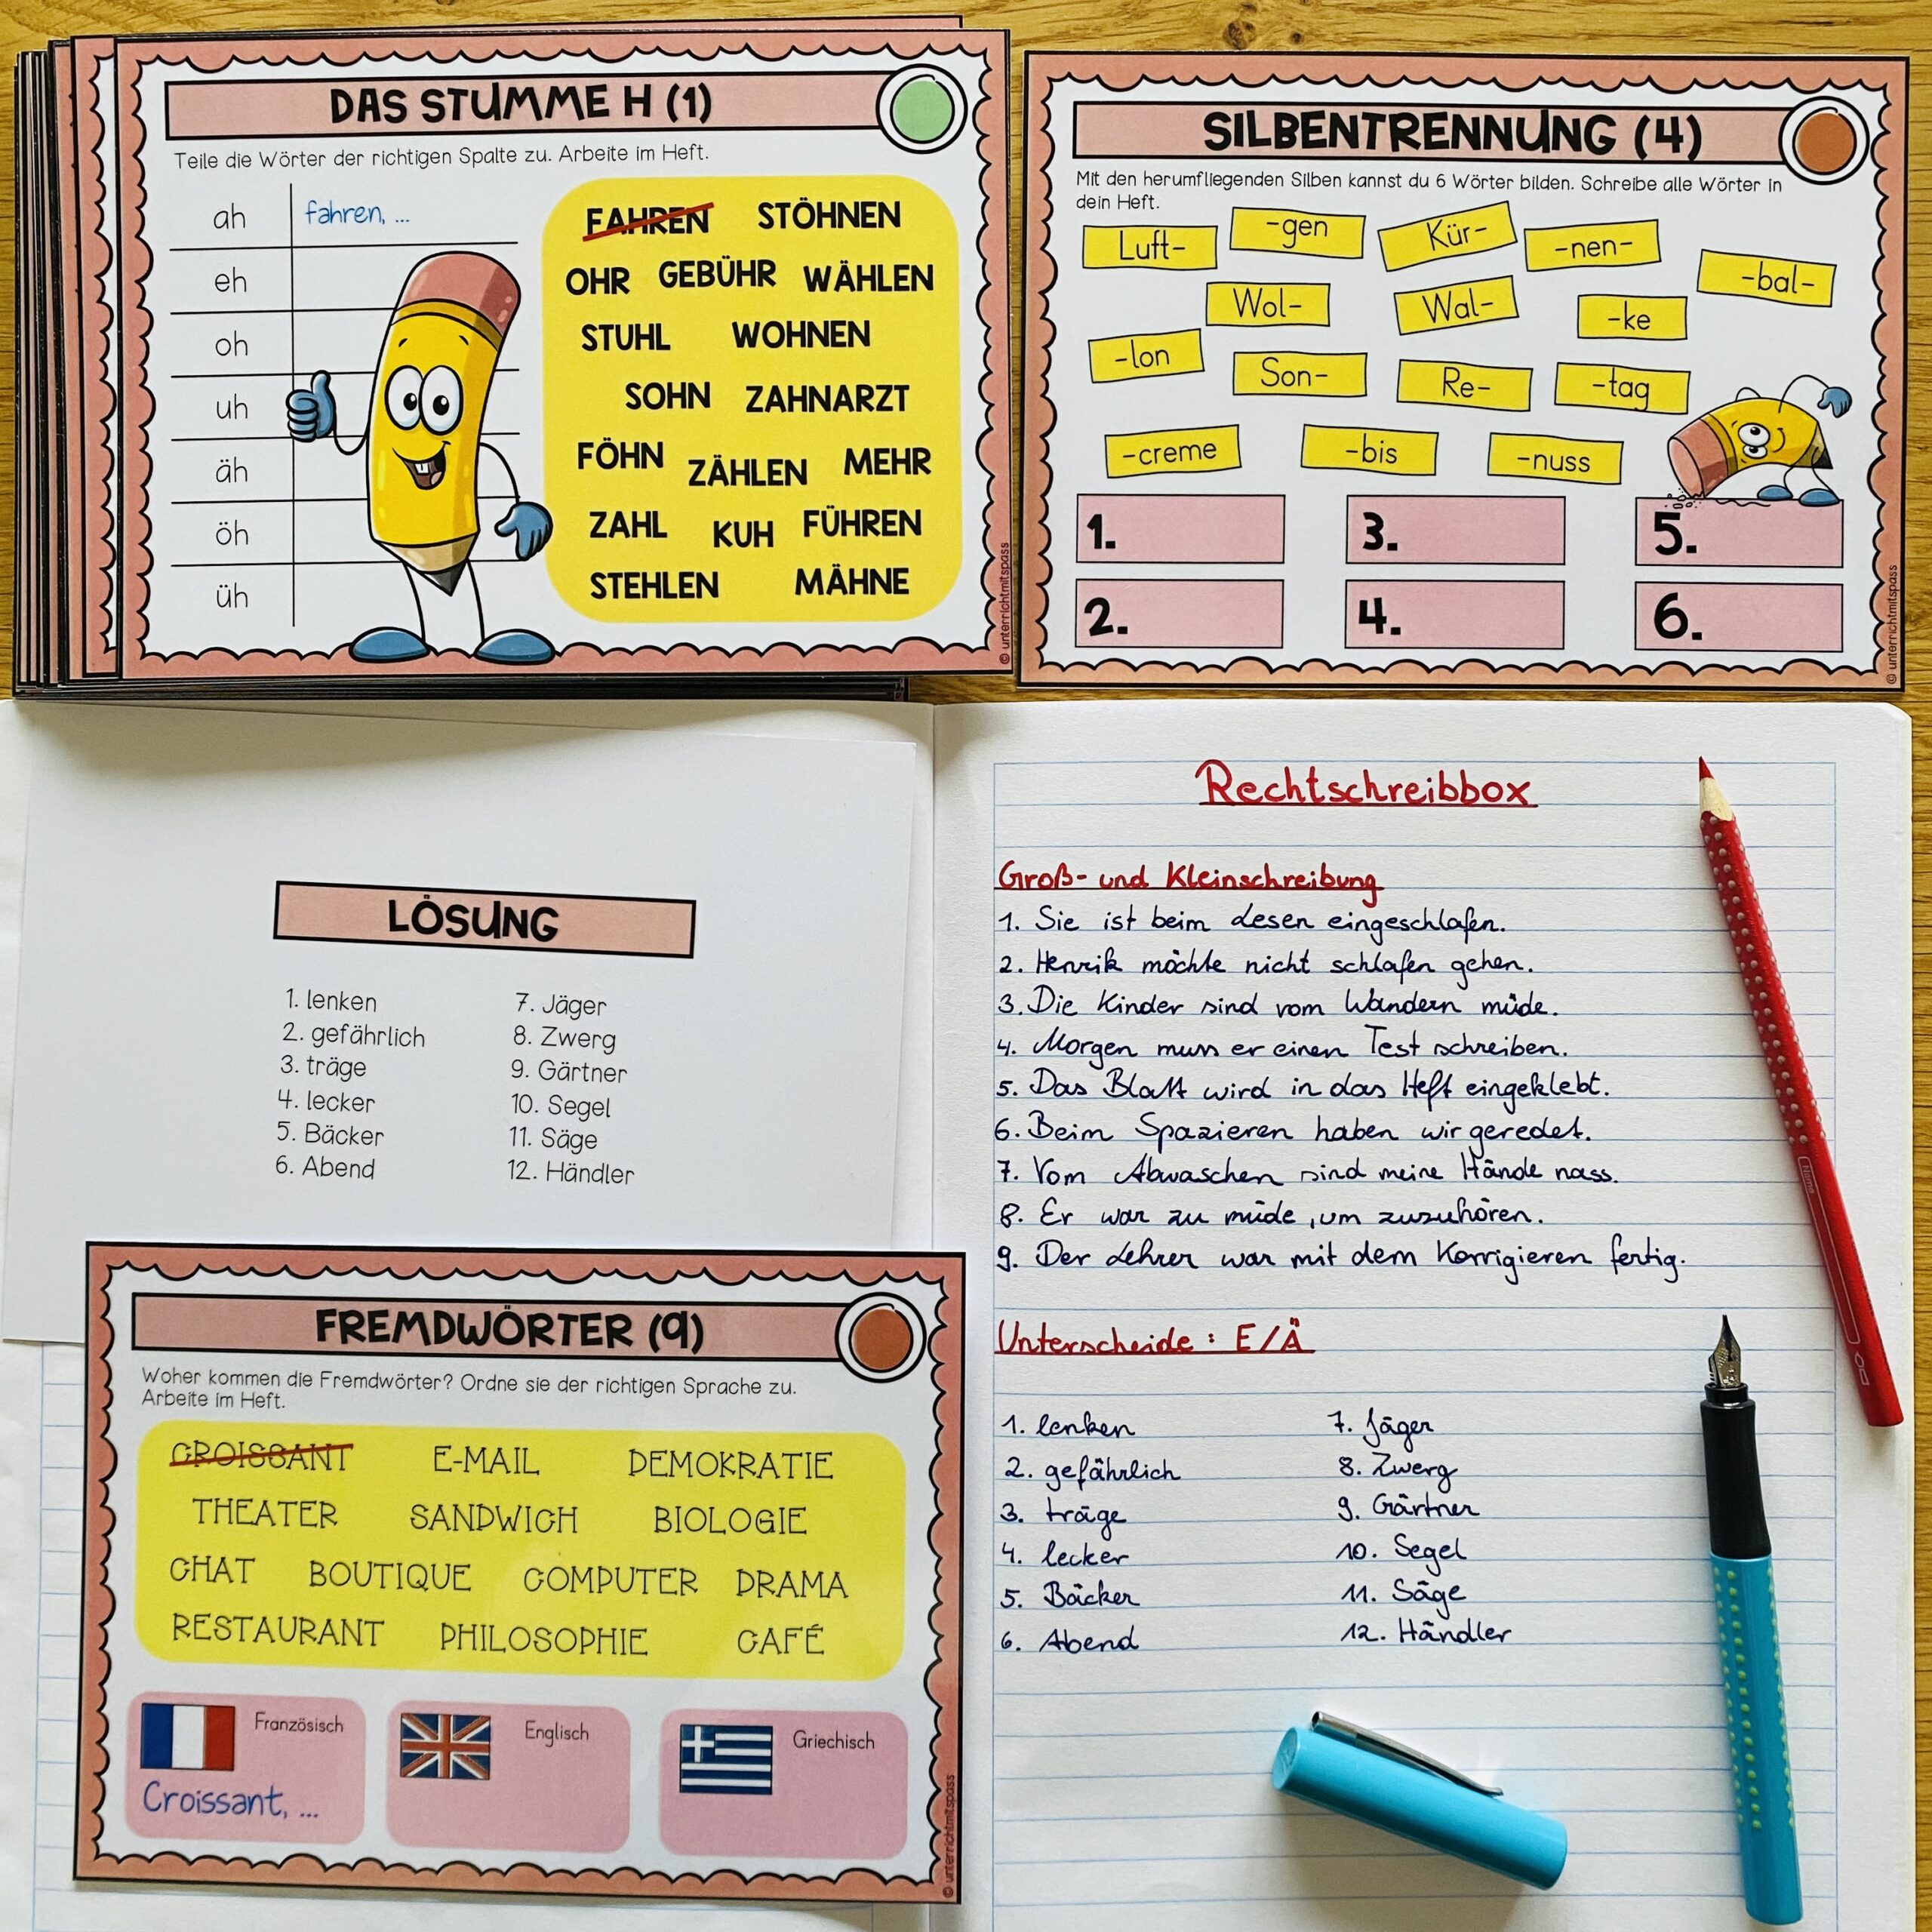 DAS STUMME H (1)
Teile die Wörter der richtigen Spalte zu. Arbeite im Heft.
ah fahren, ...
eh
oh
uh
äh
öh
üh
FAHREN STÖHNEN
OHR GEBÜHR WÄHLEN
STUHL WOHNEN
SOHN ZAHNARZT
FÖHN ZÄHLEN MEHR
ZAHL KUH FÜHREN
STEHLEN MÄHNE
© unterrichtmitspass
SILBENTRENNUNG (4)
Mit den herumfliegenden Silben kannst du 6 Wörter bilden. Schreibe alle Wörter in
dein Heft.
Luft- -gen Kür- -nen- -bal-
Wol- Wal- -ke
-lon Son- Re- -tag
-creme -bis -nuss
1. 3. 5.
2. 4. 6.
© unterrichtmitspass
LÖSUNG
1. lenken 7. Jäger
2. gefährlich 8. Zwerg
3. träge 9. Gärtner
4. lecker 10. Segel
5. Bäcker 11. Säge
6. Abend 12. Händler
FREMDWÖRTER (9)
Woher kommen die Fremdwörter? Ordne sie der richtigen Sprache zu.
Arbeite im Heft.
CROISSANT E-MAIL DEMOKRATIE
THEATER SANDWICH BIOLOGIE
CHAT BOUTIQUE COMPUTER DRAMA
RESTAURANT PHILOSOPHIE CAFÉ
Französisch Englisch Griechisch
Croissant, ...
© unterrichtmitspass
Rechtschreibbox
Groß- und Kleinschreibung
1. Sie ist beim Lesen eingeschlafen.
2. Henrik möchte nicht schlafen gehen.
3. Die Kinder sind vom Wandern müde.
4. Morgen muss er einen Test schreiben.
5. Das Blatt wird in das Heft eingeklebt.
6. Beim Spazieren haben wir geredet.
7. Vom Abwaschen sind meine Hände nass.
8. Er war zu müde, um zuzuhören.
9. Der Lehrer war mit dem Korrigieren fertig.
Unterscheide: E/Ä
1. lenken 7. Jäger
2. gefährlich 8. Zwerg
3. träge 9. Gärtner
4. lecker 10. Segel
5. Bäcker 11. Säge
6. Abend 12. Händler
Name